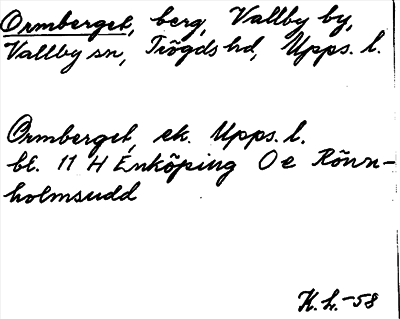 Ormberget, berg, Vallby by,
Vallby sn, Trögds hd, Upps. l.
Ormberget, ek. Upps. l.
bl. 11 H Enköping O e Rönn-
holmsudd
K.h.-58